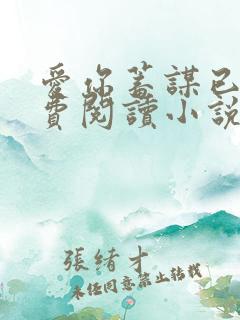 愛你蓄謀已
費閱讀小說
張緒才
未經同意禁止轉載